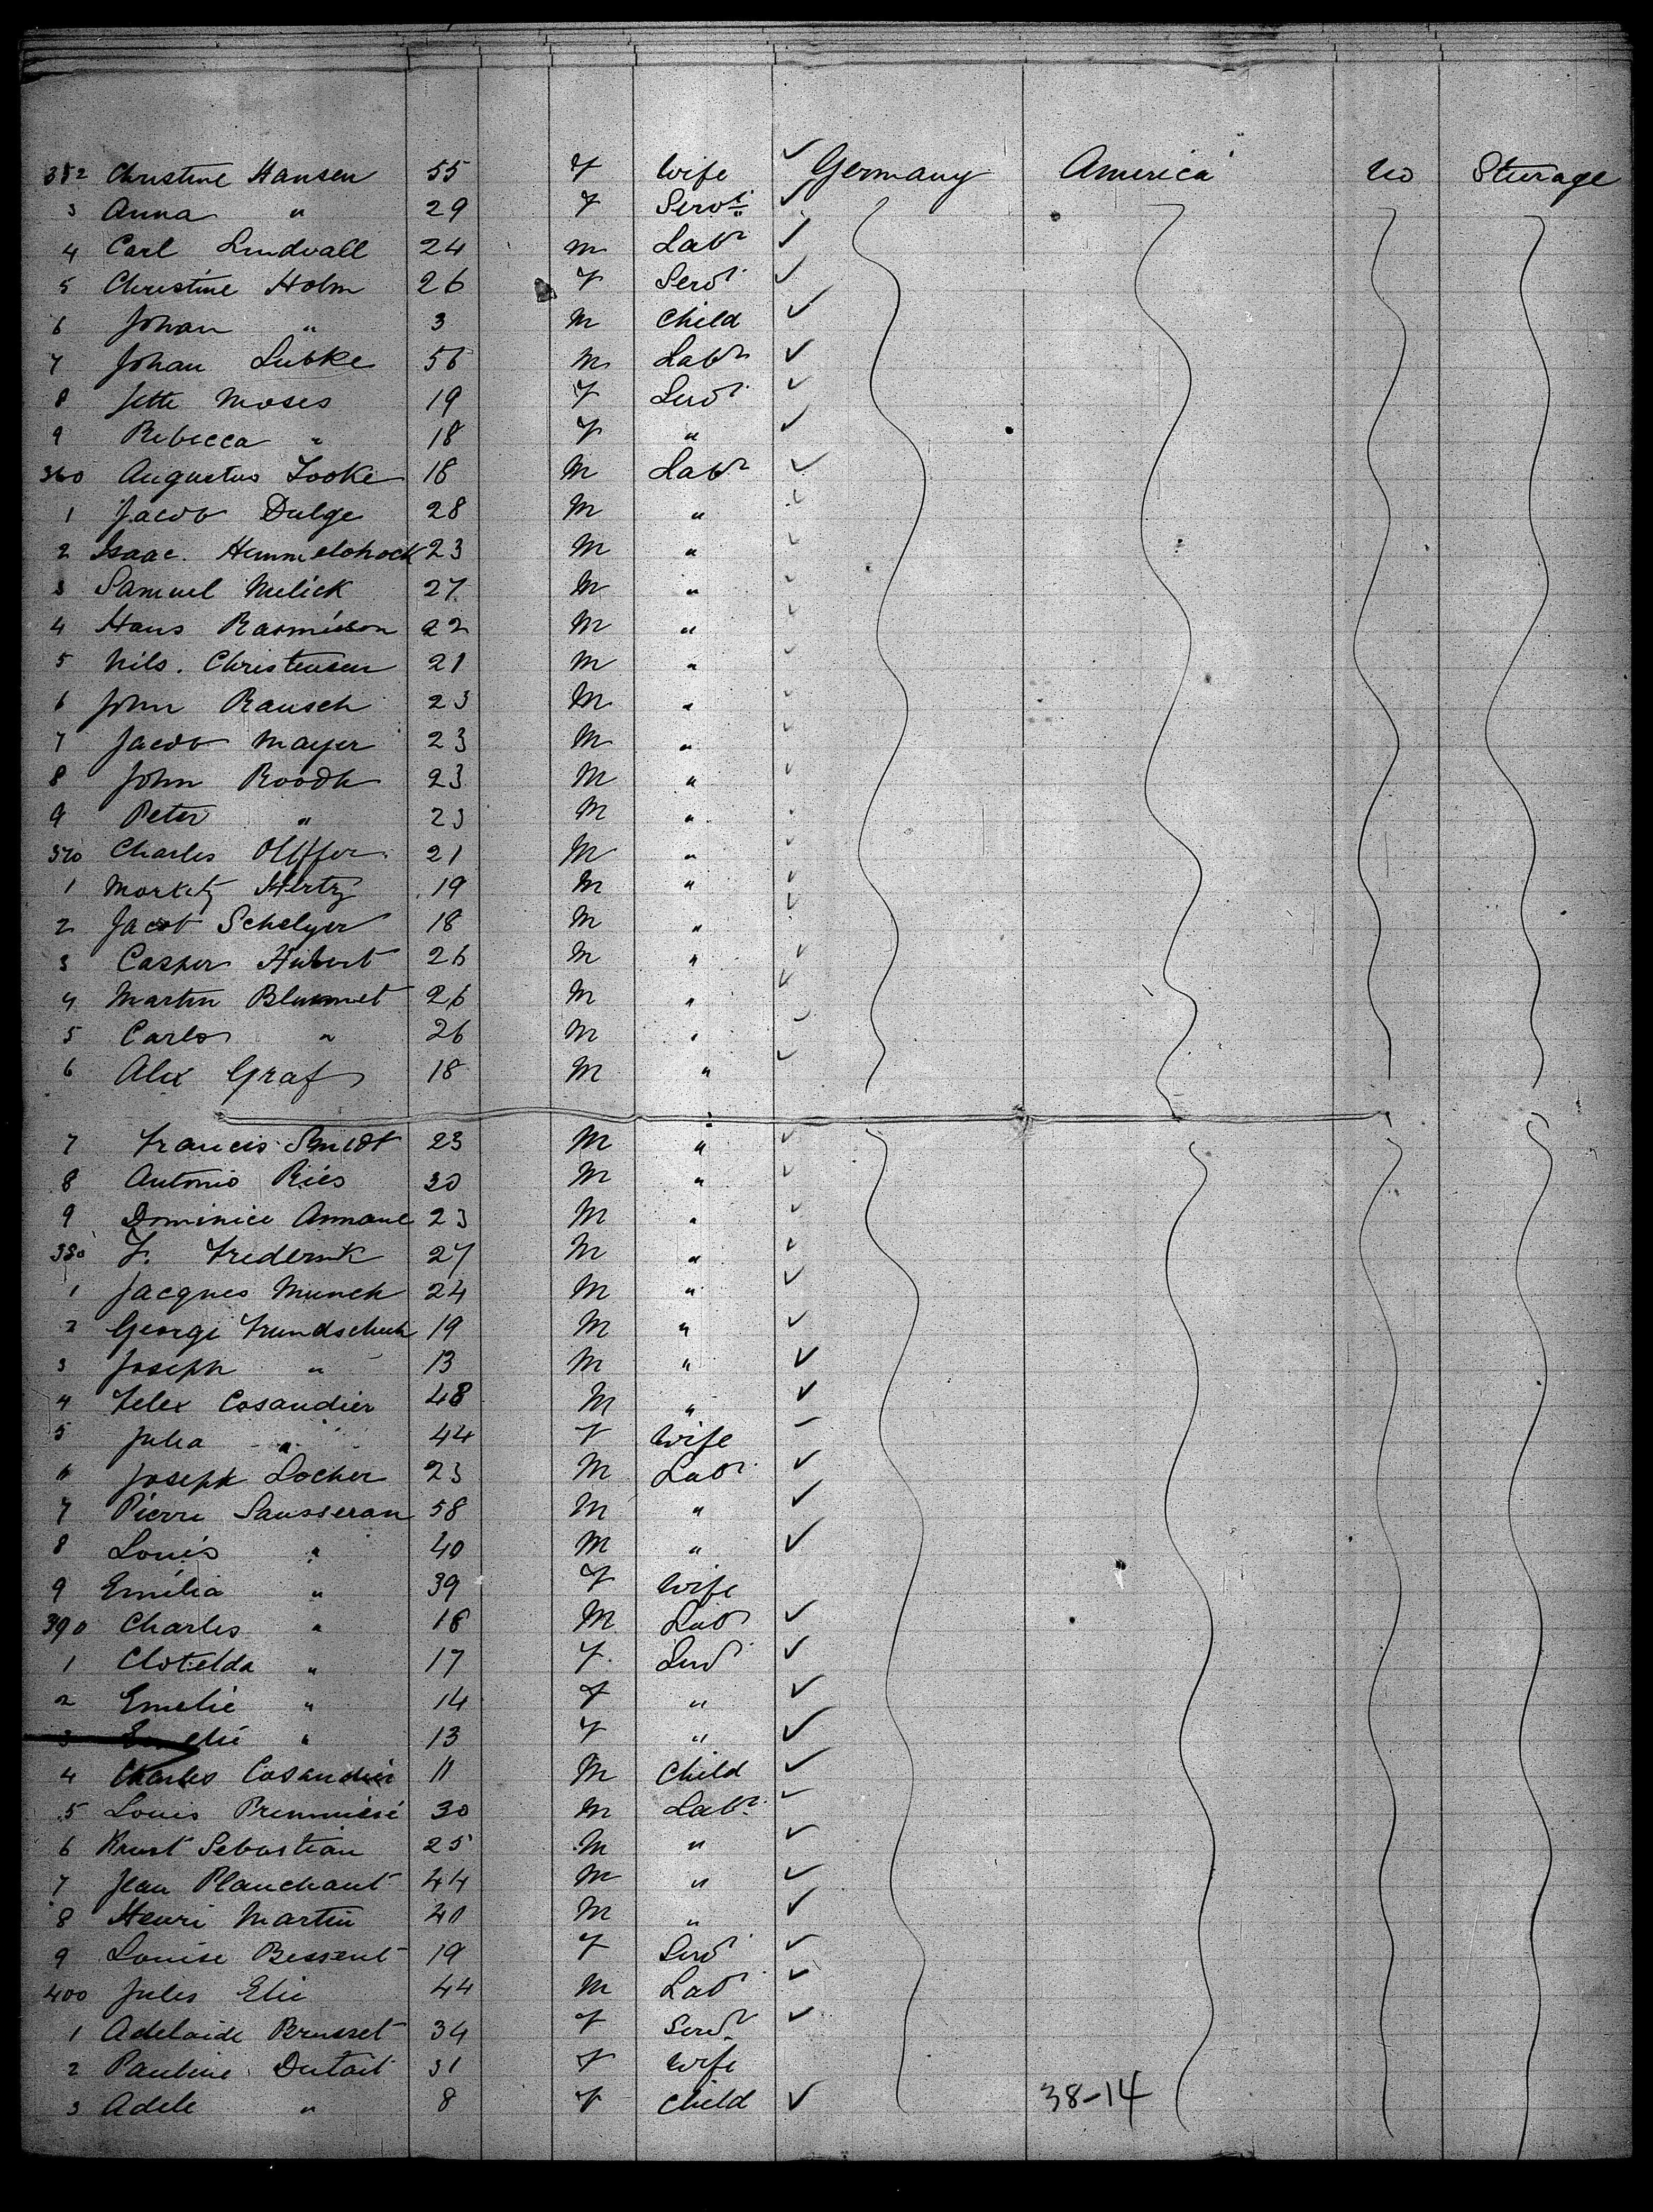 352 Christine Hansen 55 F Wife ✓ Germany America No Sturage
3 Anna " 29 F Servt ✓
4 Carl Lindvall 24 M Labr ✓
5 Christine Holm 26 F Servt ✓
6 Johan " 3 M Child ✓
7 Johan Lubke 56 M Labr ✓
8 Jette Moses 19 F Servt ✓
9 Rebecca " 18 F " ✓
360 Augustus Fooke 18 M Labr ✓
1 Jacob Dulge 28 M " ✓
2 Isaac 23 M " ✓
3 Samuel Melick 27 M " ✓
4 Hans Rasmisson 22 M " ✓
5 Nils. Christensen 21 M " ✓
6 John Rausch 23 M " ✓
7 Jacob Mayer 23 M " ✓
8 John Roodh 23 M " ✓
9 Peter " 23 M " ✓
370 Charles 21 M " ✓
1 Hertz 19 M " ✓
2 Jacob Schelyer 18 M " ✓
3 Casper Hubert 26 M " ✓
4 Martin Blummet 26 M " ✓
5 Carlo " 26 M " ✓
6 Alex Graf 18 M " ✓
7 Francis Smidt 23 M " ✓
8 Antonio Ries 30 M " ✓
9 Dominice Annane 23 M " ✓
380 F. Frederick 27 M " ✓
1 Jacques Munch 24 M " ✓
2 George Frundschuh 19 M " ✓
3 Joseph " 13 M " ✓
4 Felex Cosandier 48 M " ✓
5 Julia " 44 F Wife
6 Joseph Locher 23 M Labr ✓
7 Pierre Sausseran 58 M " ✓
8 Louis " 40 M " ✓
9 Emilia " 39 F Wife
390 Charles " 18 M Lab ✓
1 Clotelda " 17 F Serv ✓
2 Emelie " 14 F " ✓
3 " 13 F " ✓
4 Charles Cosandier 11 M Child ✓
5 Louis 30 M Labr ✓
6 Krust Sebastian 25 M " ✓
7 Jean Planchant 44 M " ✓
8 Henri Martin 40 M " ✓
9 Louise Bessent 19 F Serv ✓
400 Jules Elie 44 M Lab ✓
1 Adelaide Brusset 34 F Serv ✓
2 Pauline Dutoit 31 F Wife
3 Adele " 8 F Child ✓ 38-14